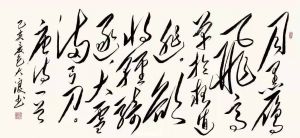 月黑雁
飛高
單于夜遁
逃欲
將輕騎
逐大雪
滿弓刀
唐诗一首
己亥 大 书